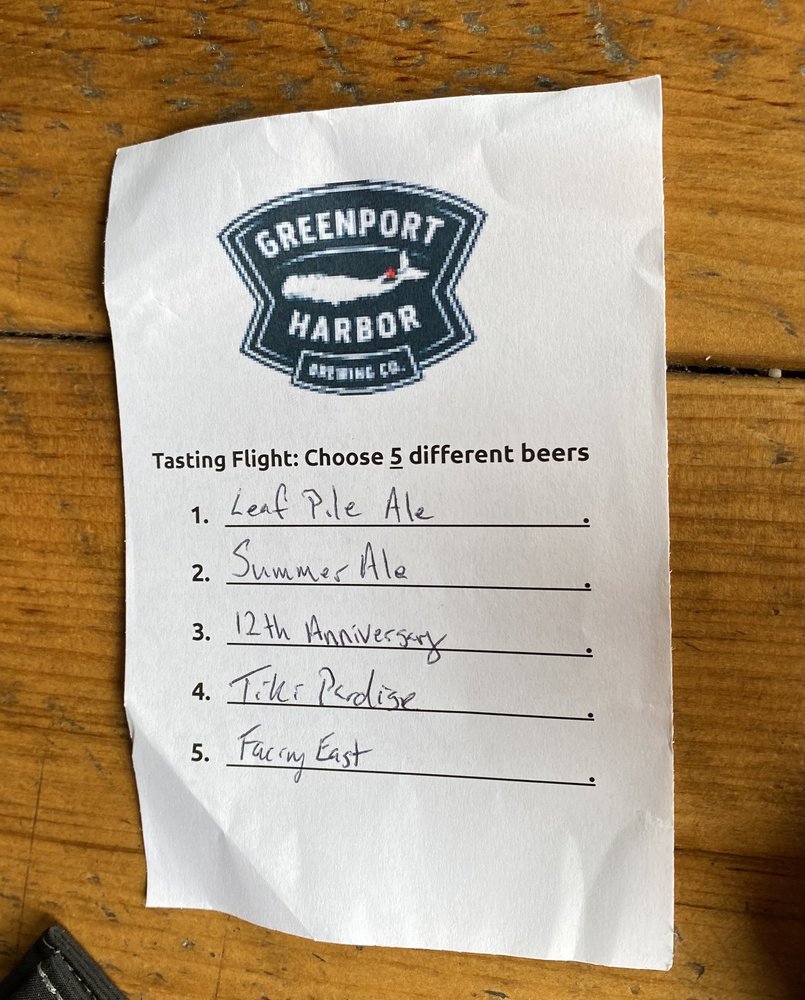 GREENPORT
HARBOR
BREWING CO.
Tasting Flight: Choose 5 different beers
1. Leaf Pile Ale.
2. Summer Ale.
3. 12th Anniversary.
4. Tiki Pardise.
5. Facing East.